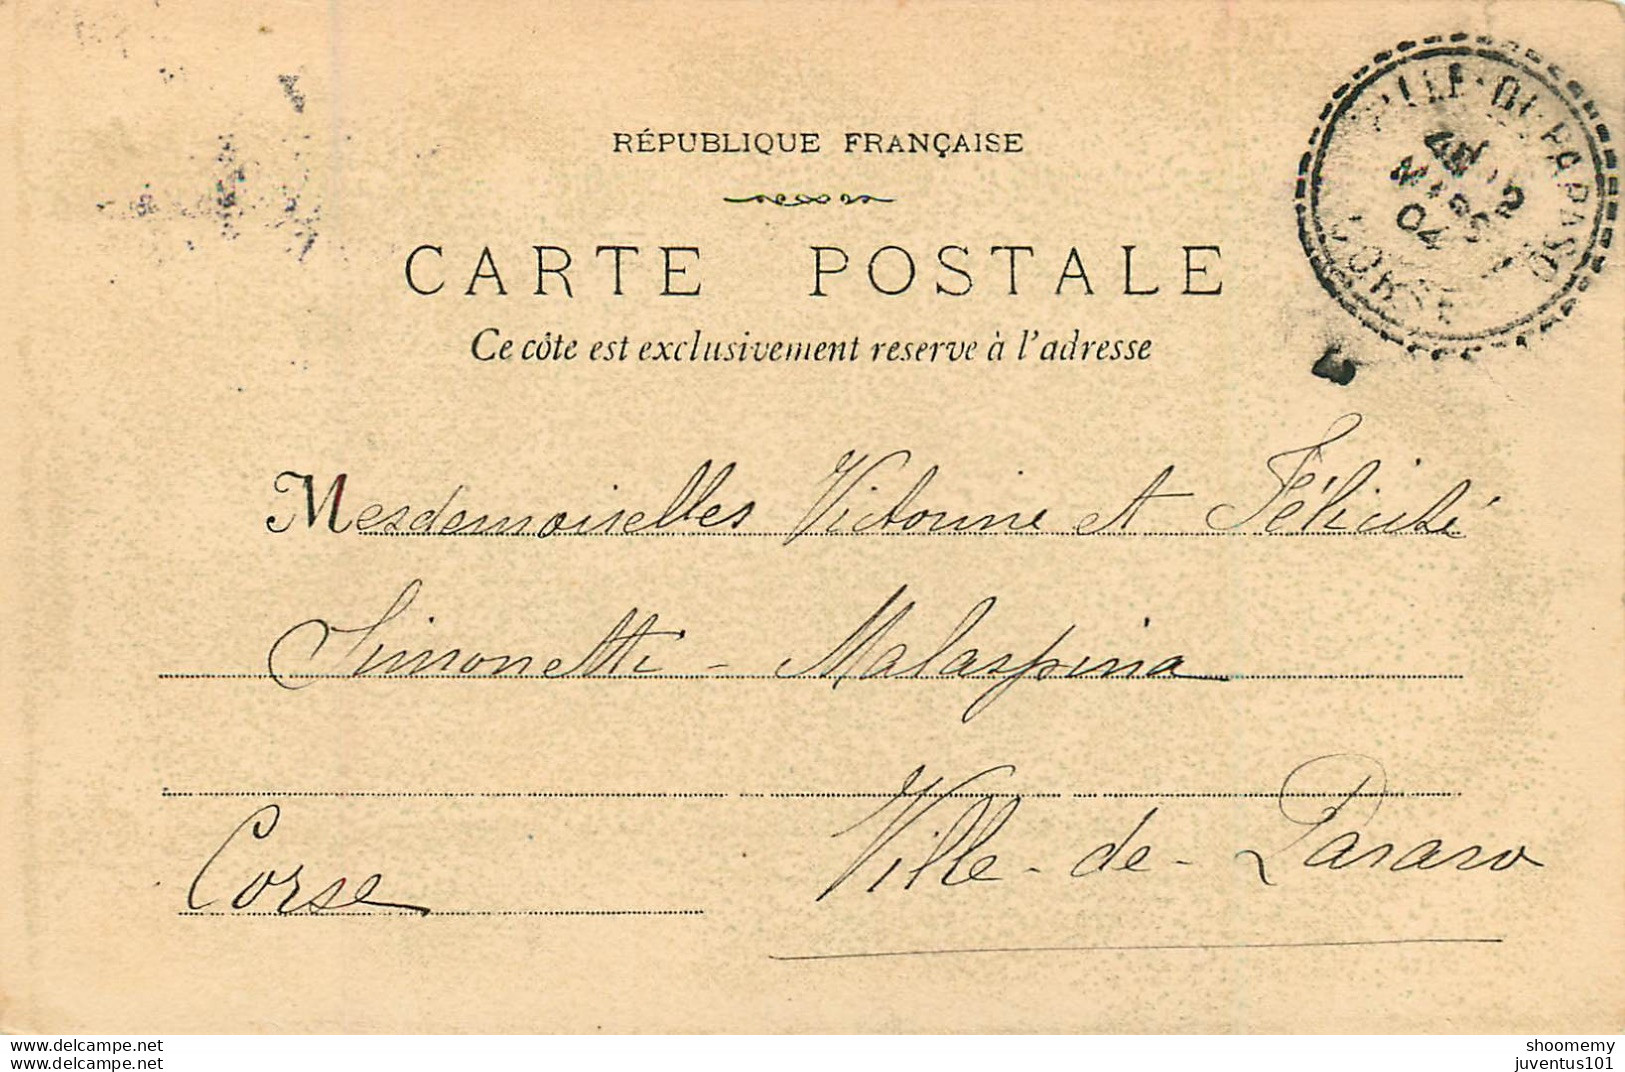 RÉPUBLIQUE FRANÇAISE
CARTE POSTALE
Ce côte est exclusivement reserve à l'adresse
VILLE-DI-PARASO
MARS
04
CORSE
Mesdemoiselles Victorine et Félicité
Simonetti - Malaspina
Ville-de-Paraso
Corse
www.delcampe.net
www.delcampe.net
shoomemy
juventus101